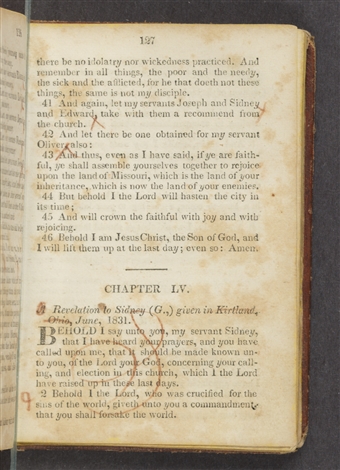 127
there be no idolatry nor wickedness practiced. And
remember in all things, the poor and the needy,
the sick and the afflicted, for he that doeth not these
things, the same is not my disciple.
41 And again, let my servants Joseph and Sidney
and Edward, take with them a recommend from
the church.
42 And let there be one obtained for my servant
Oliver also:
43 And thus, even as I have said, if ye are faith-
ful, ye shall assemble yourselves together to rejoice
upon the land of Missouri, which is the land of your
inheritance, which is now the land of your enemies.
44 But behold I the Lord will hasten the city in
its time;
45 And will crown the faithful with joy and with
rejoicing.
46 Behold I am Jesus Christ, the Son of God, and
I will lift them up at the last day; even so: Amen.
CHAPTER LV.
A Revelation to Sidney (G.,) given in Kirtland,
Ohio, June, 1831.
BEHOLD I say unto you, my servant Sidney,
that I have heard your prayers, and you have
called upon me, that it should be made known un-
to you, of the Lord your God, concerning your call-
ing, and election in this church, which I the Lord
have raised up in these last days.
2 Behold I the Lord, who was crucified for the
sins of the world, giveth unto you a commandment,
that you shall forsake the world.